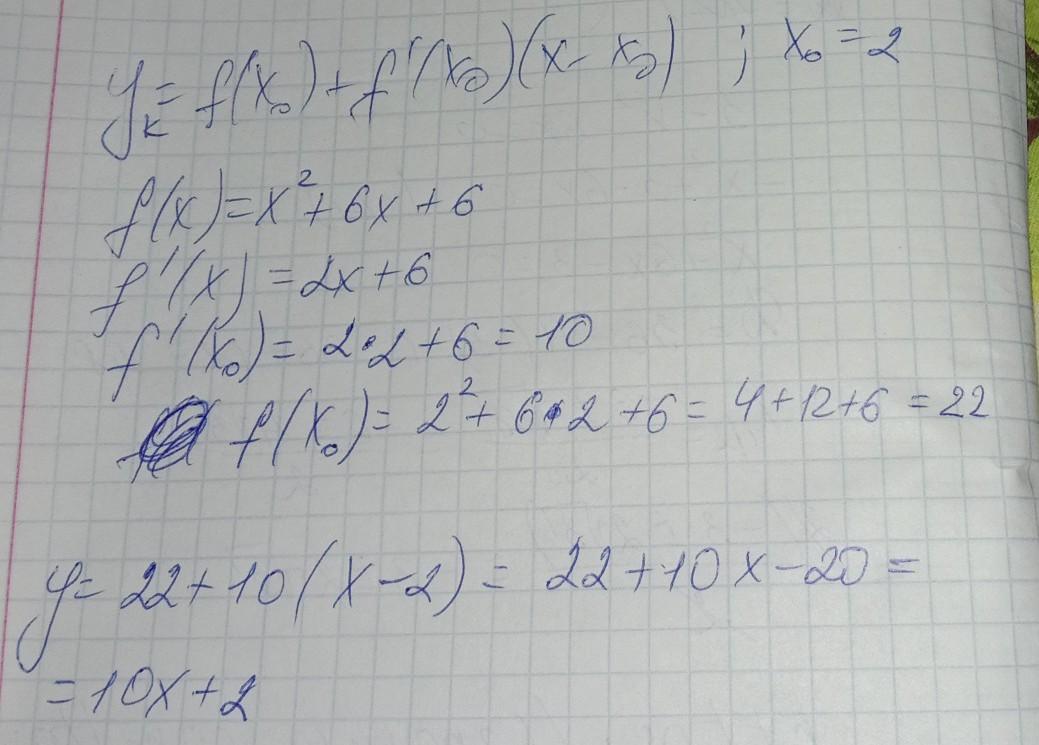 yₖ = f(x₀) + f'(x₀)(x - x₀) ; x₀ = 2
f(x) = x² + 6x + 6
f'(x) = 2x + 6
f'(x₀) = 2·2 + 6 = 10
f(x₀) = 2² + 6·2 + 6 = 4 + 12 + 6 = 22
y = 22 + 10(x - 2) = 22 + 10x - 20 =
= 10x + 2